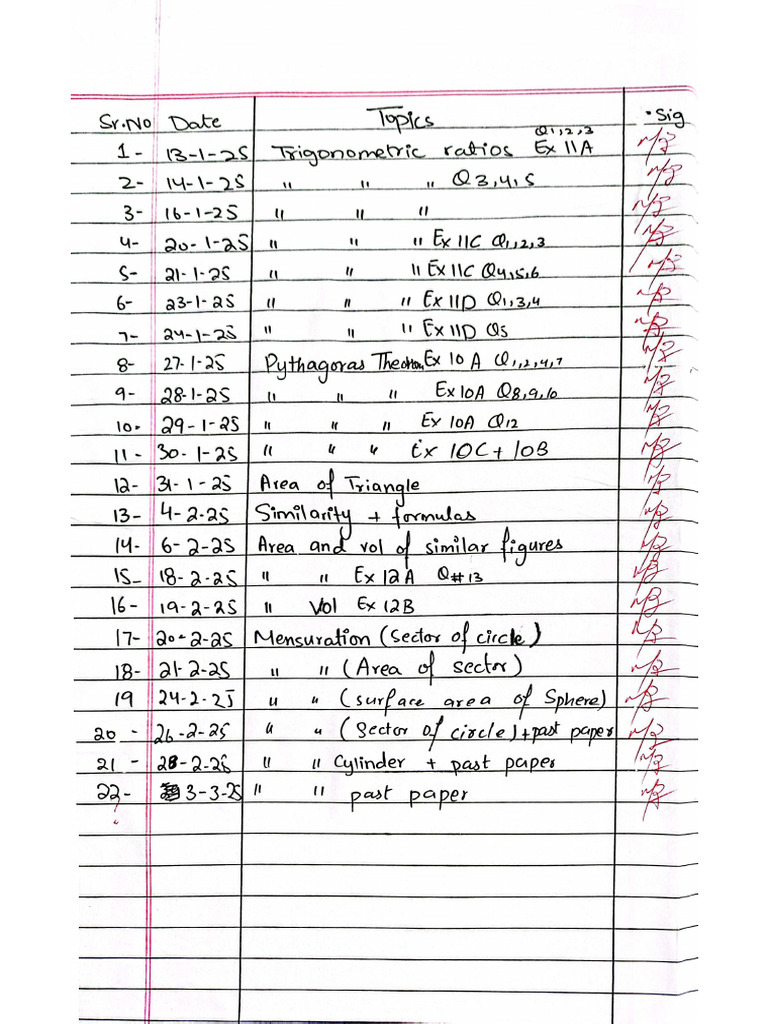 Sr.No Date Topics Sig
1- 13-1-25 Trigonometric ratios Ex 11A Q1,2,3
2- 14-1-25 " " " Q3,4,5
3- 16-1-25 " " "
4- 20-1-25 " " " Ex 11C Q1,2,3
5- 21-1-25 " " " Ex 11C Q4,5,6
6- 23-1-25 " " " Ex 11D Q1,3,4
7- 24-1-25 " " " Ex 11D Q5
8- 27-1-25 Pythagoras Ex 10A Q1,2,4,7
9- 28-1-25 " " " Ex 10A Q8,9,10
10. 29-1-25 " " " Ex 10A Q12
11- 30-1-25 " " " Ex 10C + 10B
12- 31-1-25 Area of Triangle
13- 4-2-25 Similarity + formulas
14- 6-2-25 Area and vol of similar figures
15- 18-2-25 " " Ex 12A Q#13
16- 19-2-25 " Vol Ex 12B
17- 20-2-25 Mensuration (Sector of circle)
18- 21-2-25 " " (Area of sector)
19 24-2-25 " " (surface area of Sphere)
20- 26-2-25 " " (Sector of circle) + past paper
21- 28-2-25 " " Cylinder + past paper
22- 3-3-25 " " past paper